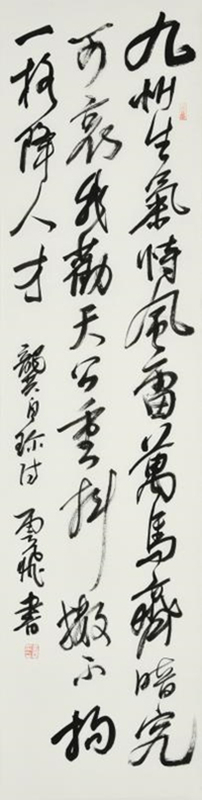 九州生氣恃風雷萬馬齊喑究
可哀我勸天公重抖擻不拘
一格降人才
龔自珍诗 雲飛書